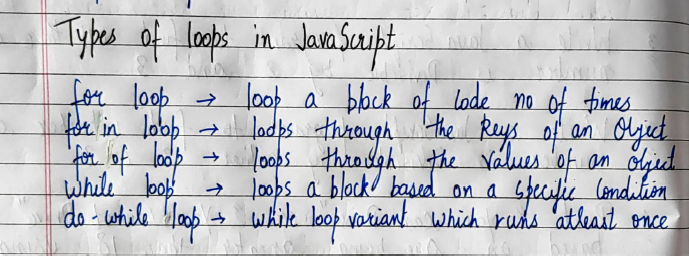 Types of loops in JavaScript
for loop → loop a block of code no of times
for in loop → loops through the keys of an Object
for of loop → loops through the values of an object
while loop → loops a block based on a specific condition
do-while loop → while loop variant which runs atleast once